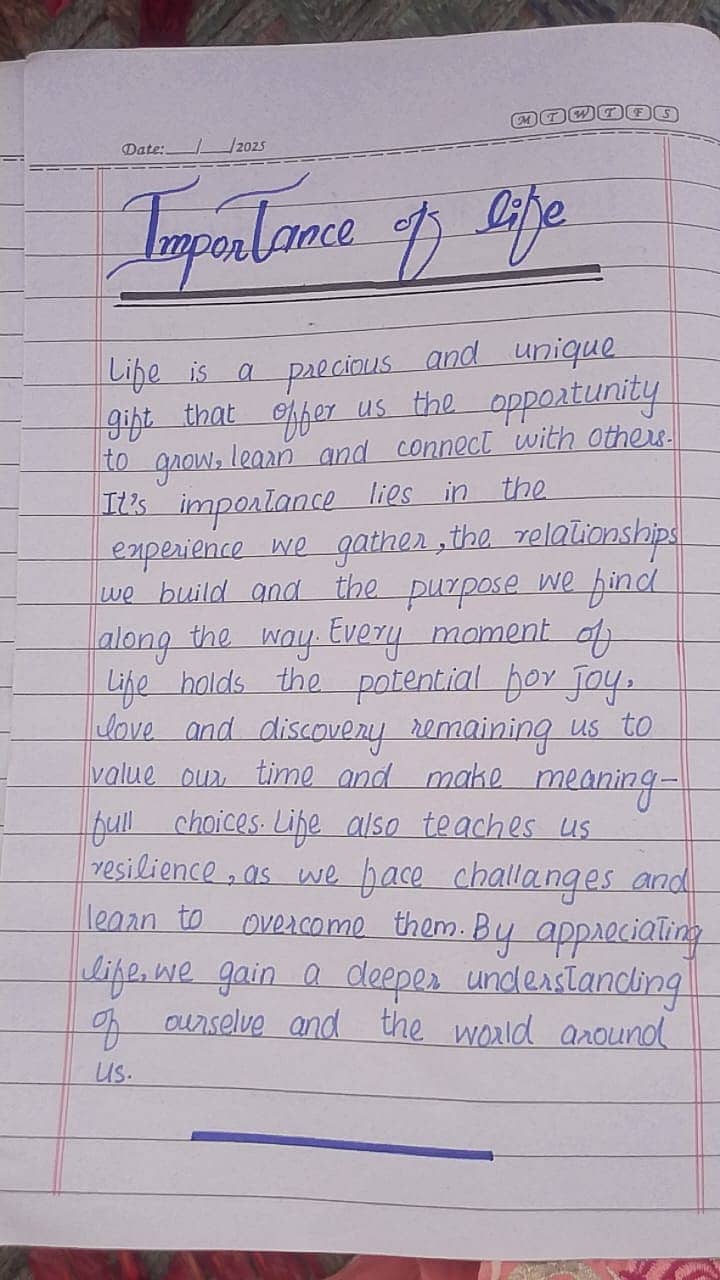 M T W T F S
Date: __/__/2025
Importance of life
Life is a precious and unique
gift that offer us the opportunity
to grow, learn and connect with others.
It's importance lies in the
experience we gather, the relationships
we build and the purpose we find
along the way. Every moment of
life holds the potential for joy,
love and discovery remaining us to
value our time and make meaning-
full choices. Life also teaches us
resilience, as we face challanges and
learn to overcome them. By appreciating
life, we gain a deeper understanding
of ourselve and the world around
us.